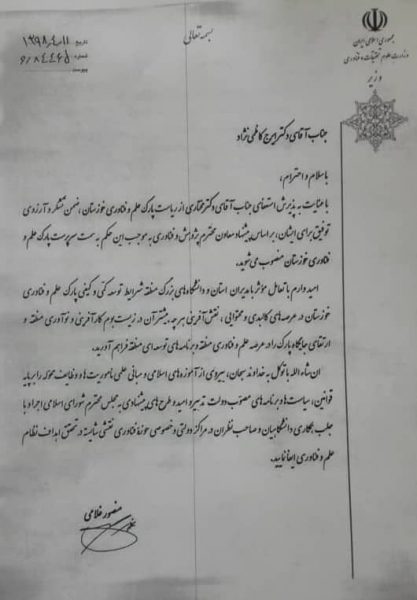 بسمه تعالی
جمهوری اسلامی ایران
وزارت علوم، تحقیقات و فناوری
وزیر
تاریخ ۱۳۹۸،۴،۱۱
شماره
پیوست
جناب آقای دکتر ایرج کاظمی نژاد
با سلام و احترام؛
با عنایت به پذیرش استعفای جناب آقای دکتر مختاری از ریاست پارک علم و فناوری خوزستان، ضمن تشکر و آرزوی
توفیق برای ایشان، بر اساس پیشنهاد معاون محترم پژوهش و فناوری به موجب این حکم به سمت سرپرست پارک علم و
فناوری خوزستان منصوب می شوید.
امید دارم با تعامل مؤثر با مدیران استان و دانشگاه های بزرگ منطقه شرایط توسعه کمی و کیفی پارک علم و فناوری
خوزستان در عرصه های کالبدی و محتوایی، نقش آفرینی هر چه بیشتر آن در زیست بوم کارآفرینی و نوآوری منطقه و
ارتقای جایگاه پارک را در عرصه علم و فناوری منطقه و برنامه های توسعه ای منطقه فراهم آورید.
ان شاء الله با توکل به خداوند سبحان، پیروی از آموزه های اسلامی و مبانی علمی مأموریت ها و وظایف محوله را بر پایه
قوانین، سیاست ها و برنامه های مصوب دولت تدبیر و امید و طرح های پیشنهادی به مجلس محترم شورای اسلامی اجرا و با
جلب همکاری دانشگاهیان و صاحب نظران در مراکز دولتی و خصوصی حوزه فناوری نقشی شایسته در تحقق اهداف نظام
علم و فناوری ایفا نمایید.
منصور غلامی